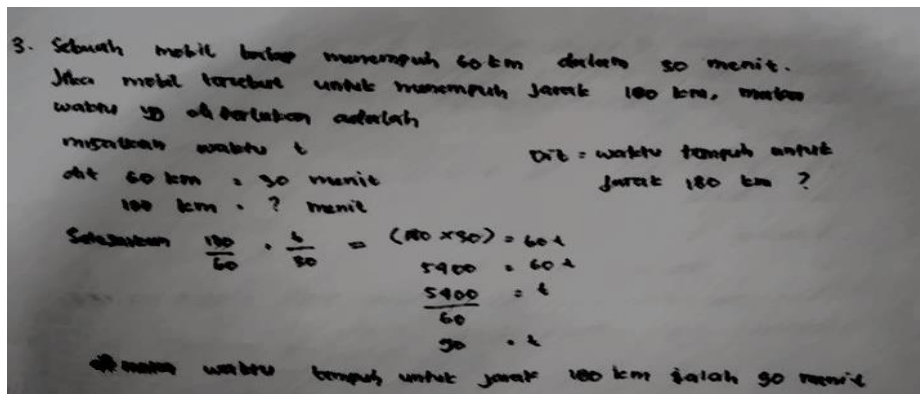 3. Sebuah mobil balap menempuh 60 km dalam 30 menit.
Jika mobil tersebut untuk menempuh Jarak 180 km, maka
waktu yg di perlukan adalah
misalkan waktu t
Dit = waktu tempuh untuk
Jarak 180 km ?
dit 60 km = 30 menit
180 km = ? menit
Selesaikan 180/60 = t/30 = (180 x 30) = 60 t
5400 = 60 t
5400/60 = t
90 = t
maka waktu tempuh untuk jarak 180 km ialah 90 menit